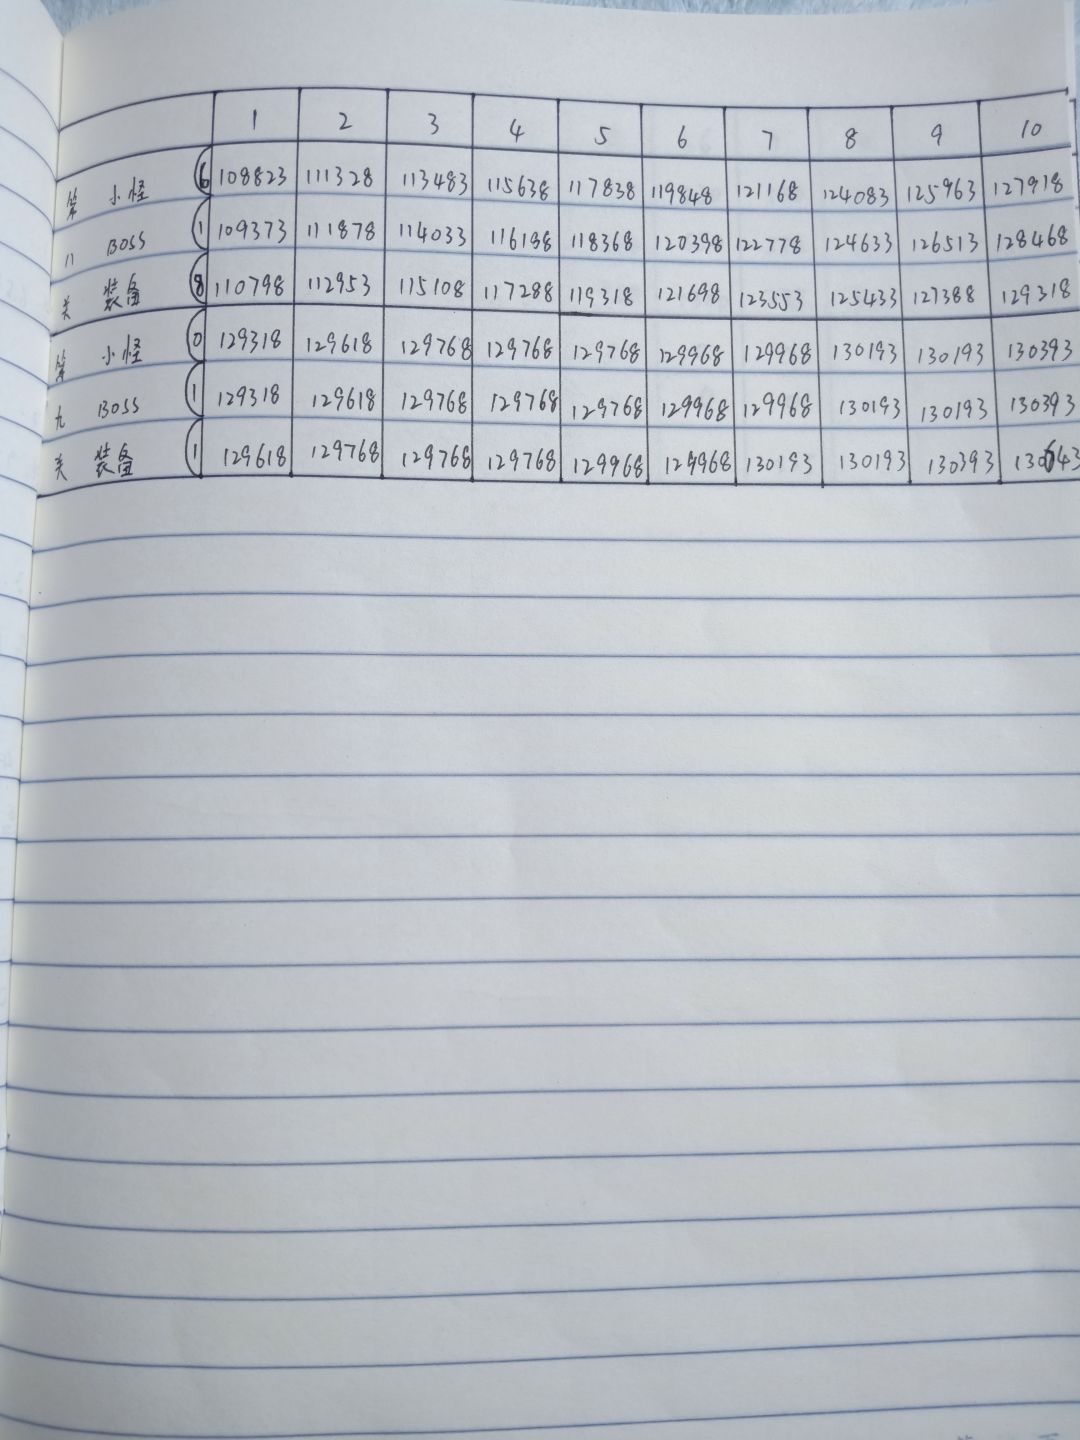 1 2 3 4 5 6 7 8 9 10
第 小怪 6 108823 111328 113483 115638 117838 119848 121168 124083 125963 127918
八 BOSS 1 109373 111878 114033 116188 118368 120398 122778 124633 126513 128468
关 装备 8 110798 112953 115108 117288 119318 121698 123553 125433 127388 129318
第 小怪 0 129318 129618 129768 129768 129768 129968 129968 130193 130193 130393
九 BOSS 1 129318 129618 129768 129768 129768 129968 129968 130193 130193 130393
关 装备 1 129618 129768 129768 129768 129968 129968 130193 130193 130393 130643